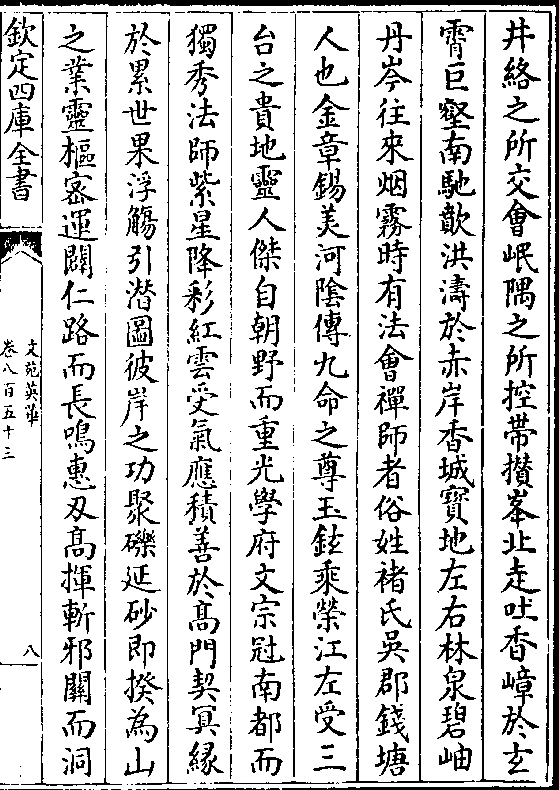 井絡之所交會岷隅之所控帶攅峯北走吐香嶂於玄
霄巨壑南馳歕洪濤於赤岸香城寶地左右林泉碧岫
丹岑往來烟霧時有法會禪師者俗姓禇氏吳郡錢塘
人也金章錫美河陰傳九命之尊玉鉉乗榮江左受三
台之貴地靈人傑自朝野而重光學府文宗冠南都而
獨秀法師紫星降彩紅雲受氣應積善於髙門契冥縁
於累世果浮觴引潜圖彼岸之功聚礫延砂即揆為山
之業靈樞宻運闢仁路而長鳴惠刄髙揮斬邪關而洞
欽定四庫全書
文苑英華
卷八百五十三
八